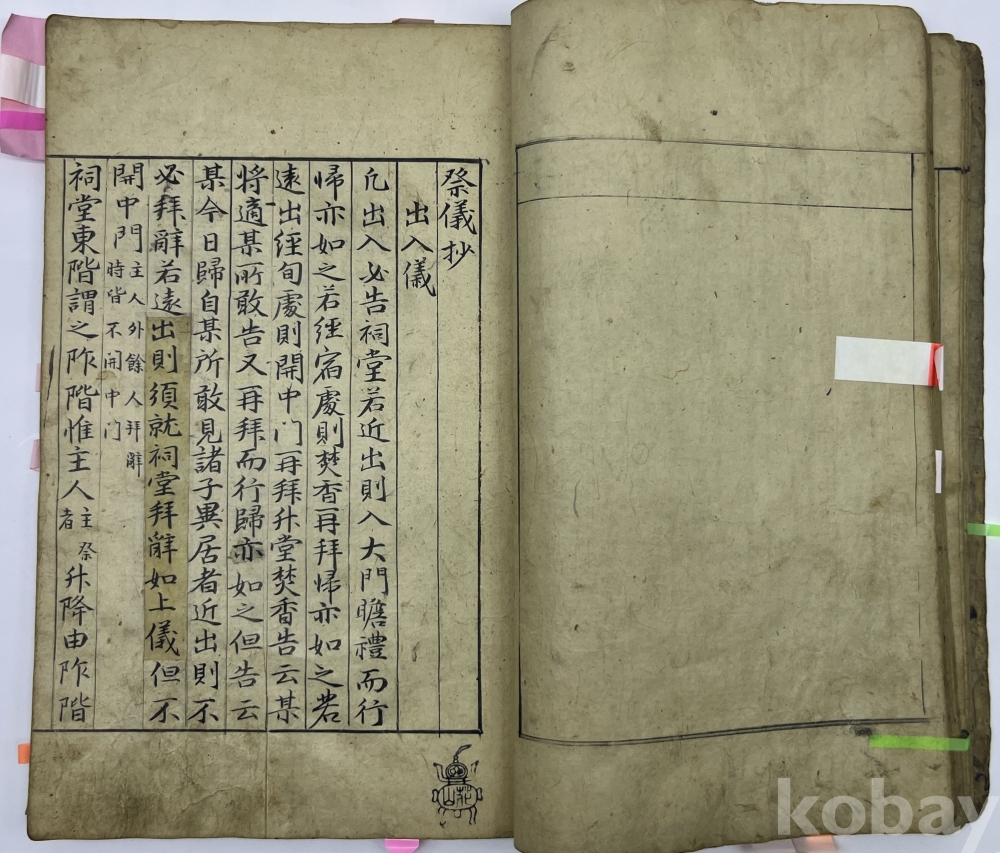 祭儀抄
出入儀
凡出入必告祠堂若近出則入大門瞻禮而行
歸亦如之若經宿處則焚香再拜帰亦如之若
遠出經旬處則開中门再拜升堂焚香告云某
将適某所敢告又再拜而行歸亦如之但告云
某今日歸自某所敢見諸子異居者近出則不
必拜辭若遠出則須就祠堂拜辭如上儀但不
開中門主人外餘人拜辭時皆不開中门
祠堂東階謂之阼階惟主人主祭者升降由阼階
kobay